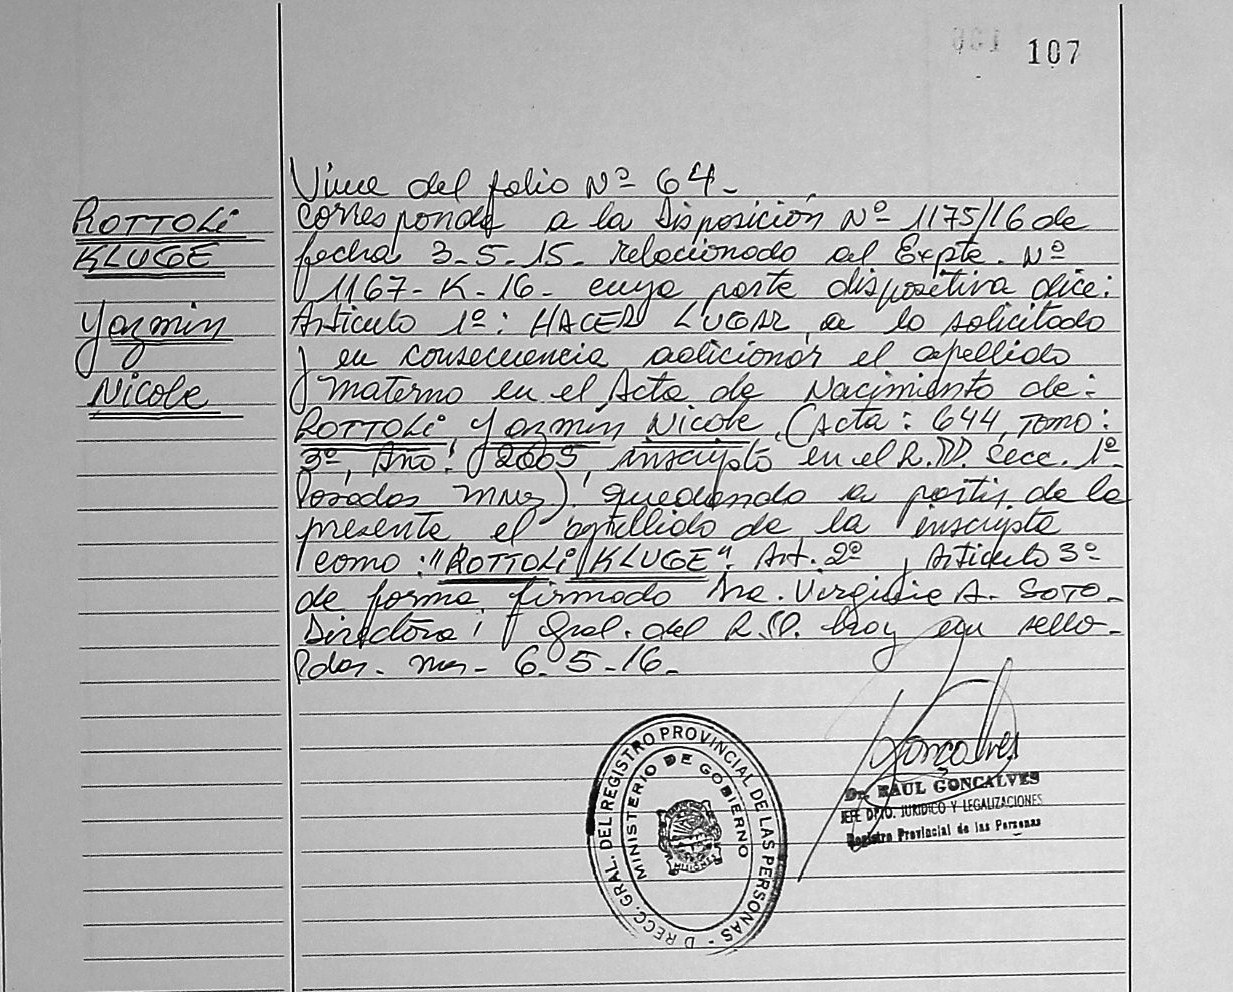 107
Viene del folio Nº 64.-
ROTTOLI
KLUGE
Yazmin
Nicole
corresponde a la Disposición Nº 1175/16 de
fecha 3-5-15- relacionado al Expte. Nº
1167-K-16- cuya parte dispositiva dice:
Artículo 1º: HACER LUGAR a lo solicitado
y en consecuencia adicionar el apellido
materno en el Acta de Nacimiento de:
ROTTOLI Yazmin Nicole, (Acta: 644, Tomo:
3º, Año: 2005, inscripto en el R.P. Secc. 1º
Posadas Mnes) quedando a partir de la
presente el apellido de la inscripta
como: "ROTTOLI KLUGE". Art. 2º y Artículo 3º
de forma, firmado Dra. Virginia A. SOTO-
Directora Gral. del R.P. hay un sello-
Pdas. Mns- 6-5-16-
Goncalves
Dr. RAUL GONCALVES
JEFE DPTO. JURIDICO Y LEGALIZACIONES
Registro Provincial de las Personas
D RECC. GRAL. DEL REGISTRO PROVINCIAL DE LAS PERSONAS -
MINISTERIO DE GOBIERNO
MISIONES